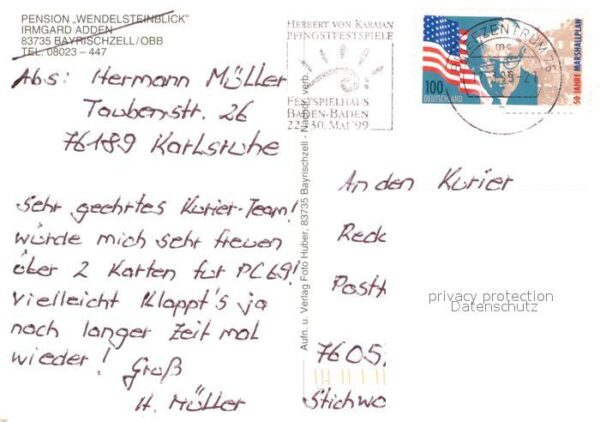 PENSION „WENDELSTEINBLICK"
IRMGARD ADDEN
83735 BAYRISCHZELL/OBB
TEL. 08023 – 447
Abs: Hermann Müller
Taubenstr. 26
76189 Karlsruhe
Sehr geehrtes Kurier-Team!
würde mich sehr freuen
über 2 Karten für PC69!
vielleicht klappt's ja
nach langer Zeit mal
wieder! Gruß
H. Müller
Aufn. u. Verlag Foto Huber, 83735 Bayrischzell - Nachdr. verb.
HERBERT VON KARAJAN
PFINGSTFESTSPIELE
FESTSPIELHAUS
BADEN-BADEN
22.-30. MAI '99
BRIEFZENTRUM 76
mc
100
DEUTSCHLAND
50 JAHRE MARSHALLPLAN
An den Kurier
Reda
Postf
7605
Stichwo
privacy protection
Datenschutz